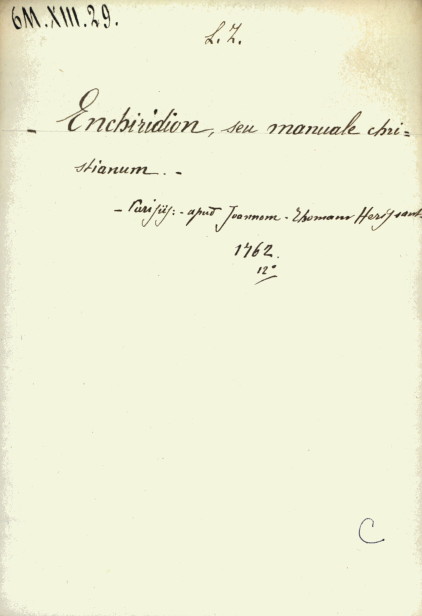 6M.XIII.29.
L.Z.
- Enchiridion, seu manuale chri=
stianum. -
- Parisiis: - apud Joannem - Thomam Herissant.
1762.
12°
C